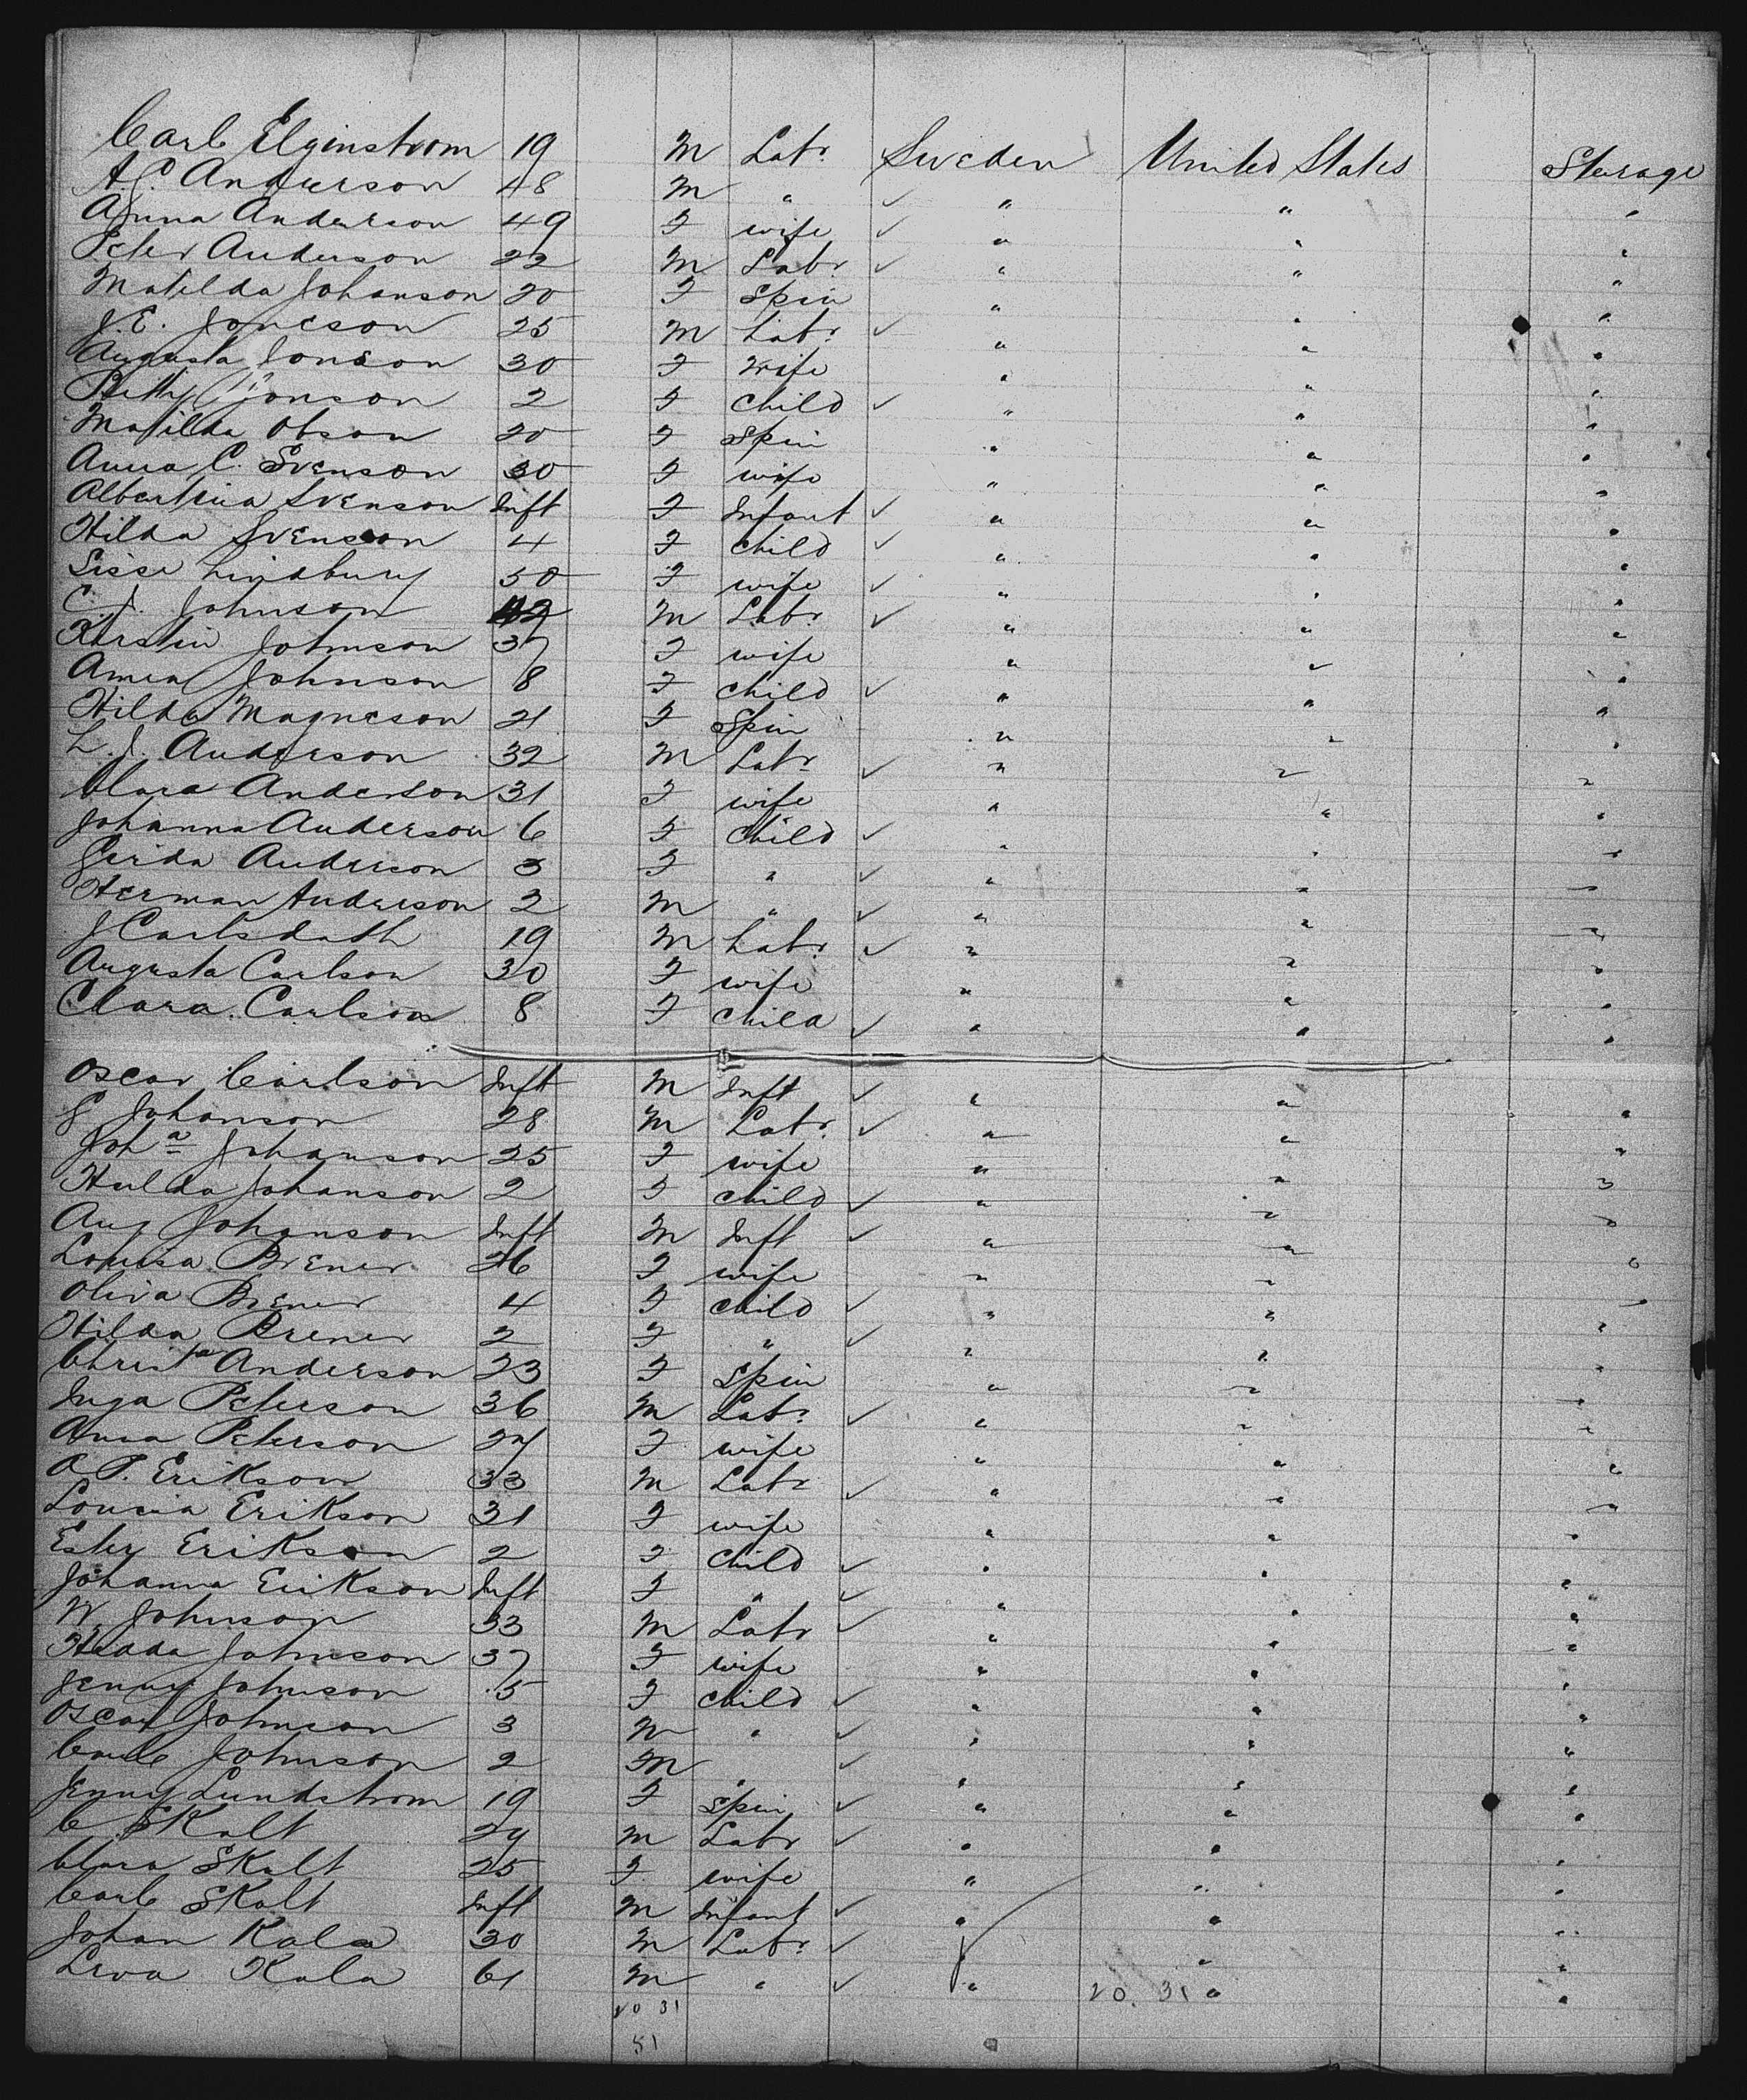 Carl Elginstrom 19 M Labr Sweden United States Steerage
A.P. Anderson 48 M " ✓ " " "
Anna Anderson 49 F wife ✓ " " "
Peter Anderson 22 M Labr ✓ " " "
Matilda Johanson 20 F Spin " " "
J.E. Joneson 25 M Labr ✓ " " "
Augusta Jonson 30 F Wife " " "
Jonson 2 F Child ✓ " " "
Matilda Olson 20 F Spin " " "
Anna C. Svenson 30 F wife " " "
Albertina Svenson Inft F Infant ✓ " " "
Hilda Svenson 4 F child ✓ " " "
Sissi Lindbury 50 F wife ✓ " " "
C. J. Johnson 42 M Labr ✓ " " "
Kerstin Johnson 37 F wife " " "
Johnson 8 F child ✓ " " "
Hilda Magneson 21 F Spin " " "
L. J. Anderson 32 M Labr ✓ " " "
Clara Anderson 31 F wife " " "
Johanna Anderson 6 F Child ✓ " " "
Gerda Anderson 3 F " ✓ " " "
Herman Anderson 2 M " ✓ " " "
J 19 M Labr ✓ " " "
Augusta Carlson 30 F wife " " "
Clara Carlson 8 F Child ✓ " " "
Oscar Carlson Inft M Inft ✓ " " "
Johanson 28 M Labr ✓ " " "
Joha Johanson 25 F wife " " "
Hulda Johanson 2 F child ✓ " " "
Aug Johanson Inft M Inft ✓ " " "
Louisa Brener 26 F wife " " "
Oliva Brener 4 F child ✓ " " "
Hilda Brener 2 F " ✓ " " "
Christa Anderson 23 F Spin " " "
Inga Peterson 36 M Labr ✓ " " "
Anna Peterson 27 F wife " " "
A.P. Erikson 33 M Labr ✓ " " "
Lousia Erikson 31 F wife " " "
Ester Erikson 2 F Child ✓ " " "
Johanna Erikson Inft F " ✓ " " "
W Johnson 33 M Labr ✓ " " "
Hedda Johnson 37 F wife " " "
Jenny Johnson 5 F child ✓ " " "
Oscar Johnson 3 M " ✓ " " "
Carl Johnson 2 M " ✓ " " "
Jenny Lundstrom 19 F Spin ✓ " " "
C Skalt 29 M Labr ✓ " " "
Clara Skalt 25 F wife " " "
Carl Skalt Inft M Infant ✓ " " "
Johan Kala 30 M Labr ✓ " " "
Kala 61 M " ✓ " 20. 31 " "
20 31
51